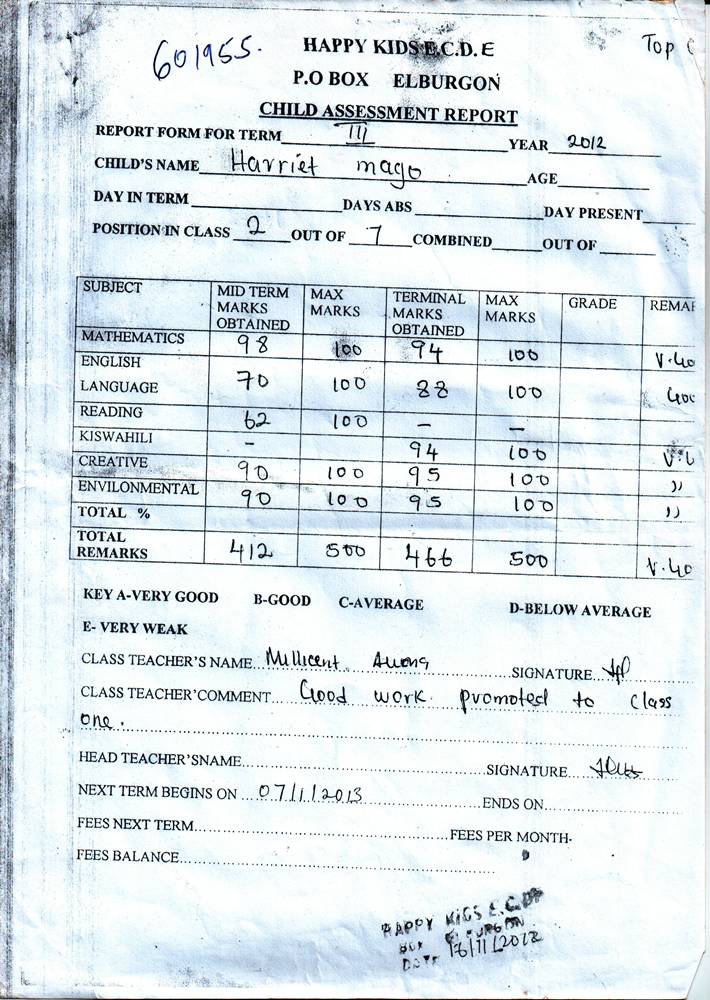 601955.
HAPPY KIDS E.C.D.E
Top
P.O BOX ELBURGON
CHILD ASSESSMENT REPORT
REPORT FORM FOR TERM III YEAR 2012
CHILD'S NAME Harriet mago AGE
DAY IN TERM DAYS ABS DAY PRESENT
POSITION IN CLASS 2 OUT OF 7 COMBINED OUT OF
SUBJECT MID TERM MARKS OBTAINED MAX MARKS TERMINAL MARKS OBTAINED MAX MARKS GRADE REMAR
MATHEMATICS 98 100 94 100 V.Go
ENGLISH
LANGUAGE 70 100 88 100 Goo
READING 62 100 – –
KISWAHILI – 94 100 V.G
CREATIVE 90 100 95 100 ,,
ENVILONMENTAL 90 100 95 100 ,,
TOTAL %
TOTAL REMARKS 412 500 466 500 V.Go
KEY A-VERY GOOD B-GOOD C-AVERAGE D-BELOW AVERAGE
E- VERY WEAK
CLASS TEACHER'S NAME Millicent SIGNATURE
CLASS TEACHER'COMMENT Good work. promoted to class
one.
HEAD TEACHER'SNAME SIGNATURE
NEXT TERM BEGINS ON 07/1/2013 ENDS ON
FEES NEXT TERM FEES PER MONTH-
FEES BALANCE
HAPPY KIDS E.C.DE
BOX ELBURGON
DATE 16/11/2012